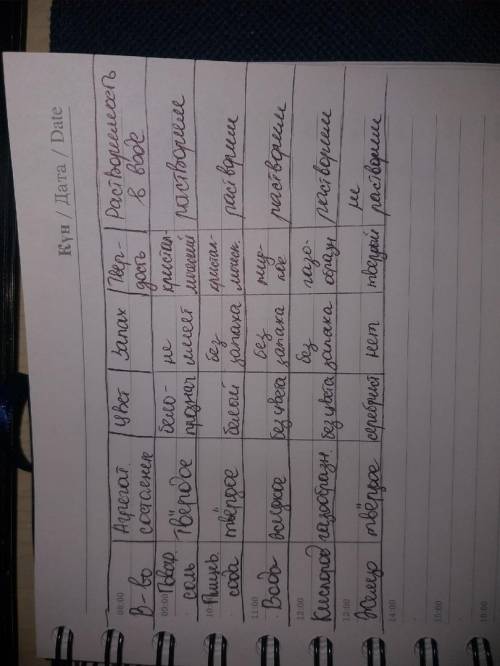 Күн / Дата / Date
08:00
В-во Агрегат. состояние Цвет Запах Твер-дость Растворимость в воде
09:00
Повар. соль Твёрдое бело-прозрач не имеет кристал-лический растворим
10:
Пищев. сода твёрдое белый без запаха кристал-лическ. растворим
11:00
Вода жидкое без цвета без запаха жид-кое растворим
12:00
Кислород газообразн. без цвета без запаха газо-образн растворим
13:00
Железо твёрдое серебрист нет твердый не растворим
14:00
15:00
16:00